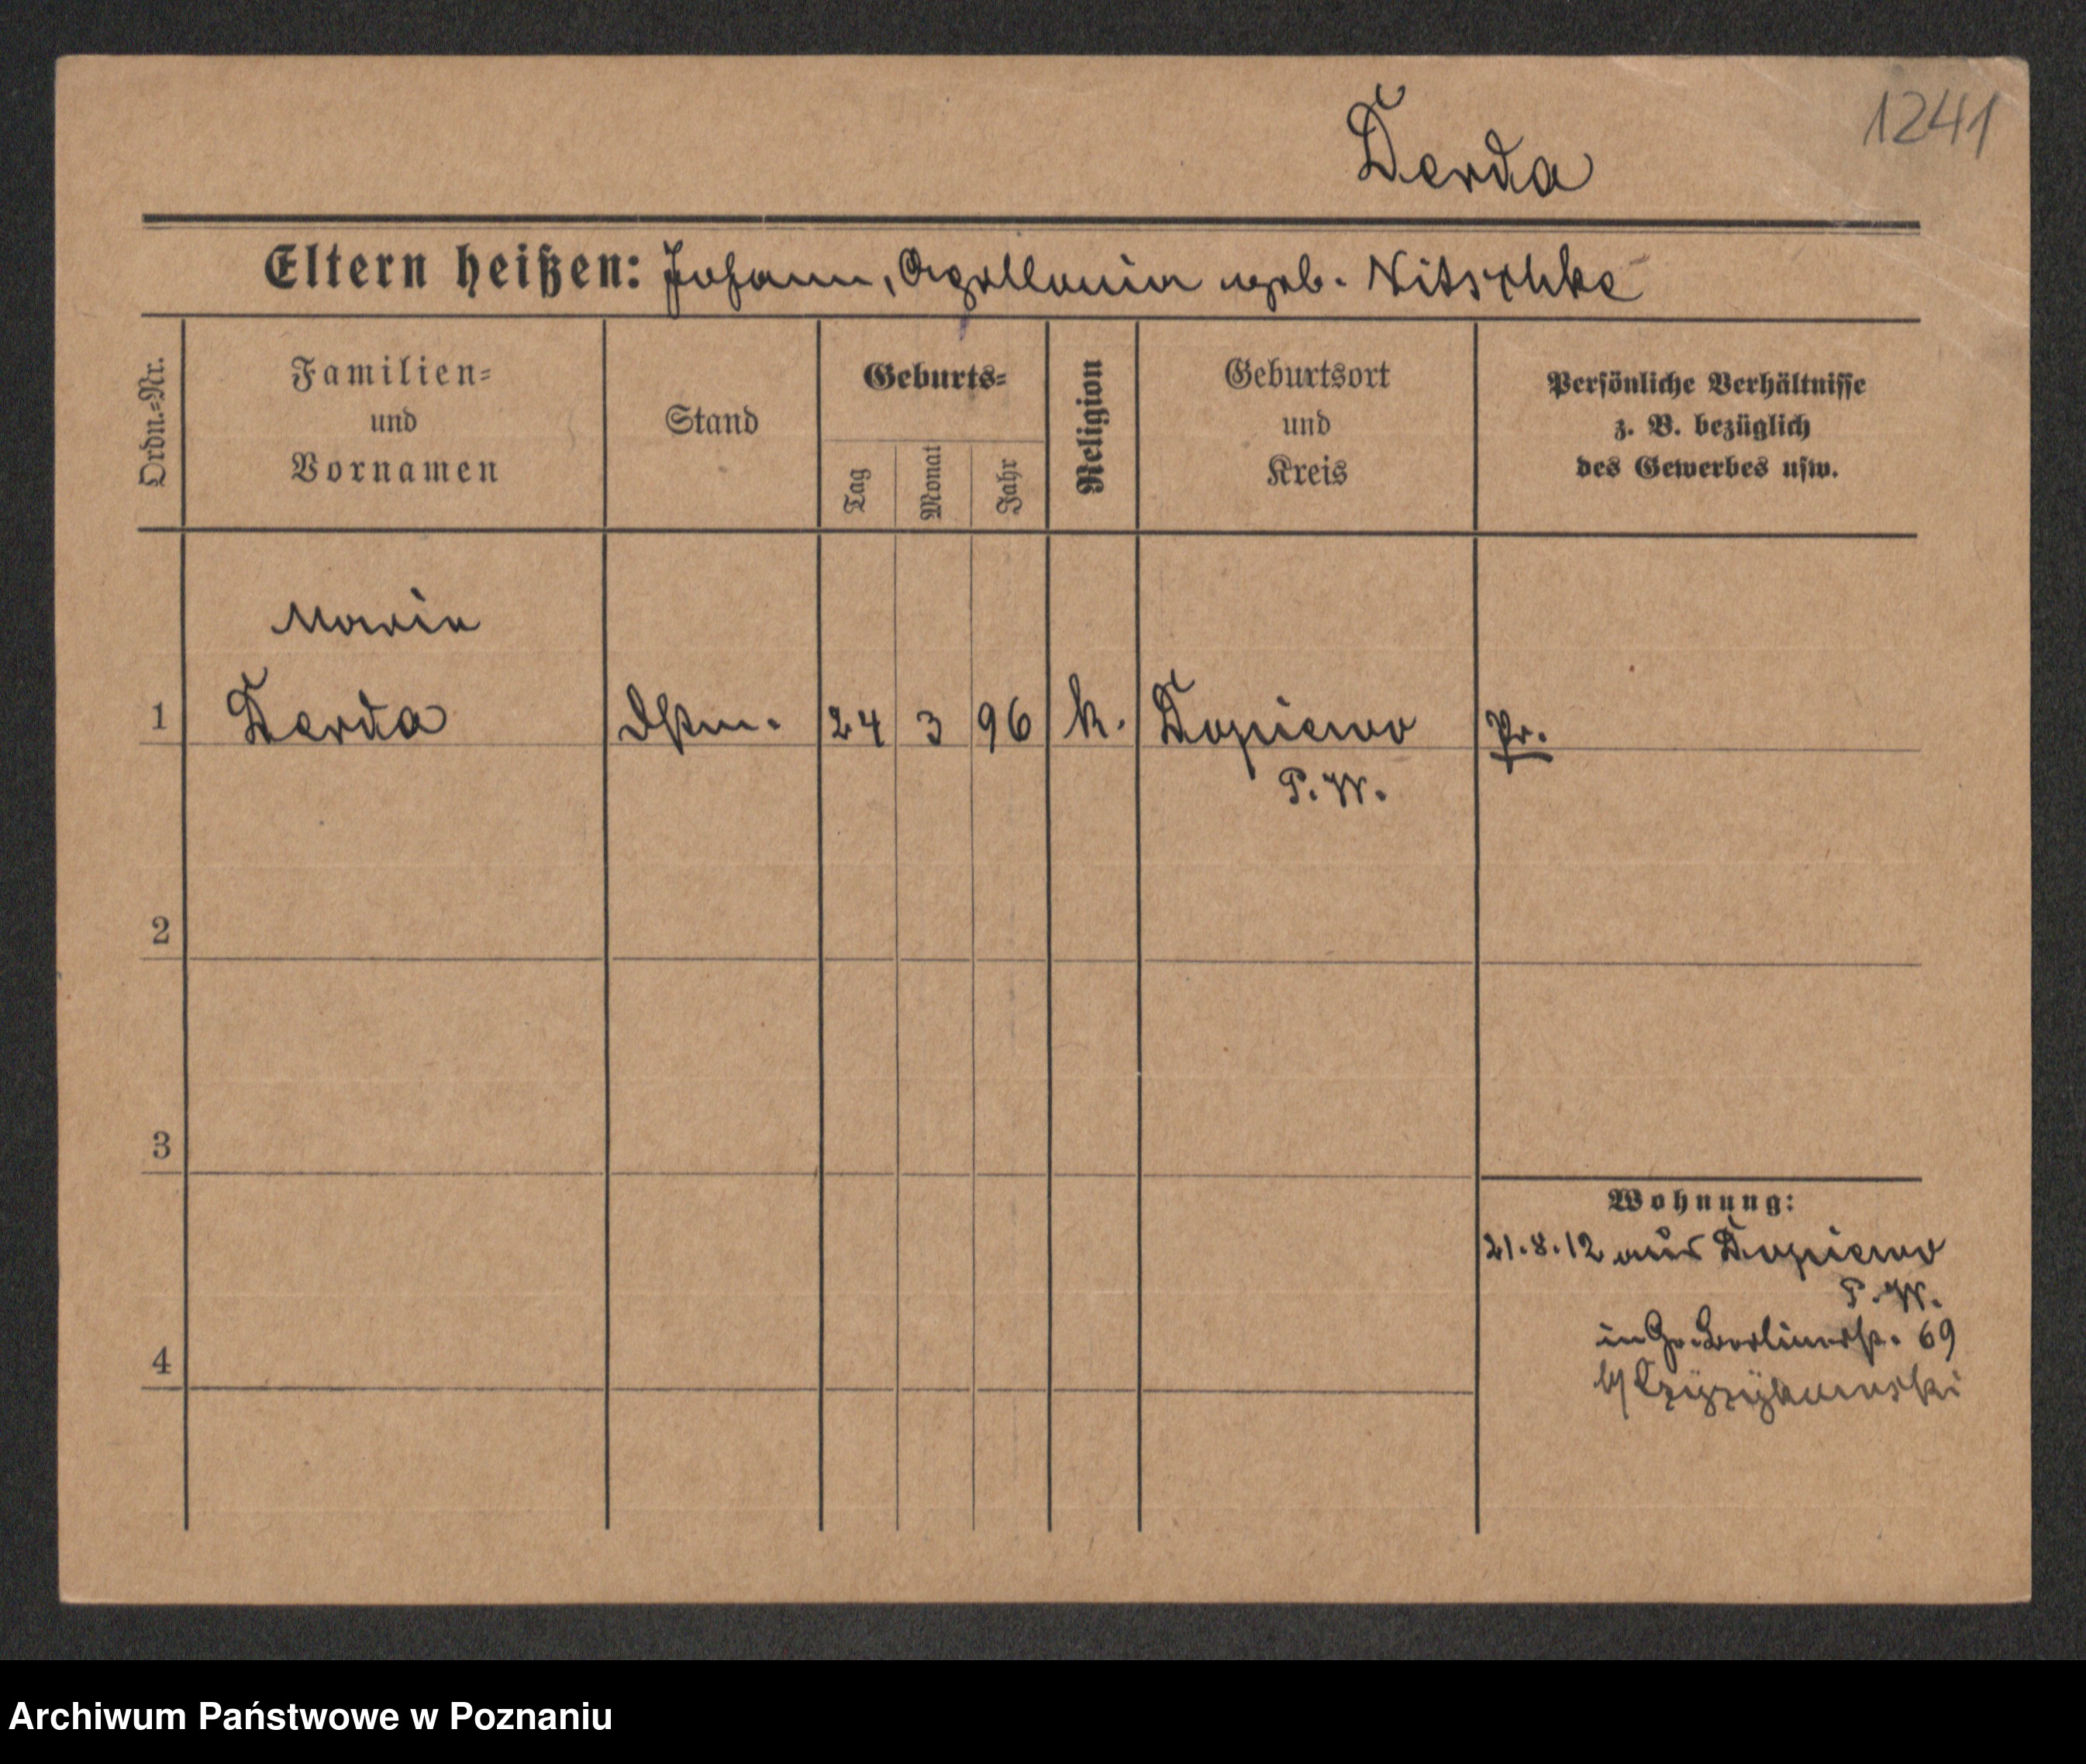 1241
Derda
Eltern heißen: Johann, Apollonia geb. Nitschke
Ordn.=Nr.
Familien=
und
Vornamen
Stand
Geburts=
Tag
Monat
Jahr
Religion
Geburtsort
und
Kreis
Persönliche Verhältnisse
z. B. bezüglich
des Gewerbes usw.
Maria
1 Derda Dstm. 24 3 96 k. Dopiewo Pr.
P. W.
2
3
Wohnung:
21.8.12 aus Dopiewo
P. W.
in Gr. Berlinerstr. 69
4
Archiwum Państwowe w Poznaniu